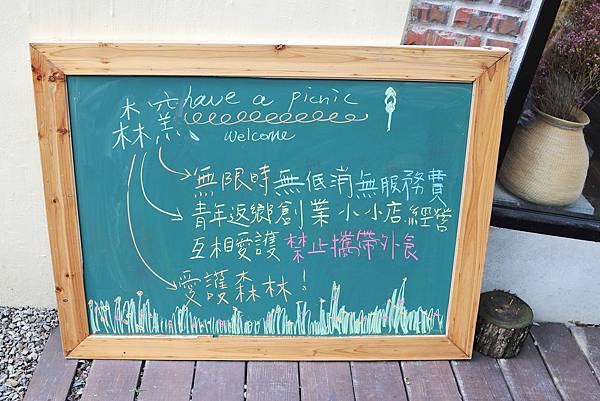 森窯 have a picnic
welcome
無限時 無低消 無服務費
青年返鄉創業 小小店經營
互相愛護 禁止攜帶外食
愛護森林！